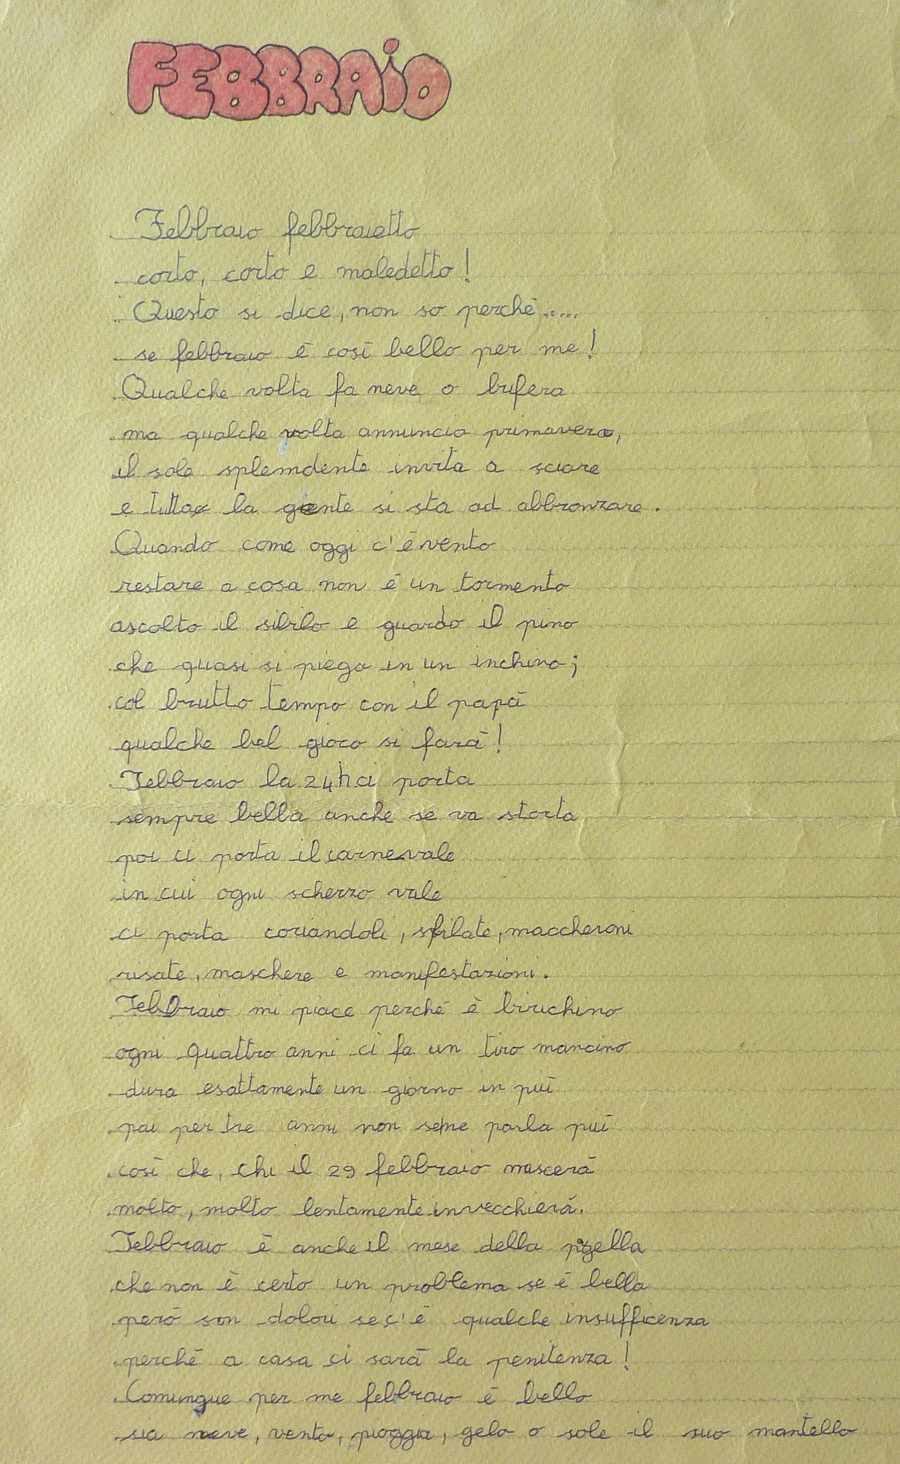 FEBBRAIO
Febbraio febbraietto
corto, corto e maledetto!
Questo si dice, non so perchè....
se febbraio è così bello per me!
Qualche volta fa neve o bufera
ma qualche volta annuncia primavera,
il sole splemdente invita a sciare
e tutta la gente si sta ad abbronzare.
Quando come oggi c'è vento
restare a casa non è un tormento
ascolto il sibilo e guardo il pino
che quasi si piega in un inchino;
col brutto tempo con il papà
qualche bel gioco si farà!
Febbraio la 24h ci porta
sempre bella anche se va storta
poi ci porta il carnevale
in cui ogni scherzo vale
ci porta coriandoli, sfilate, maccheroni
risate, maschere e manifestazioni.
Febbraio mi piace perché è birichino
ogni quattro anni ci fa un tiro mancino
dura esattamente un giorno in più
poi per tre anni non se ne parla più
così che, chi il 29 febbraio nascerà
molto, molto lentamente invecchierà.
Febbraio è anche il mese della pagella
che non è certo un problema se è bella
però son dolori se c'è qualche insufficenza
perchè a casa ci sarà la penitenza!
Comunque per me febbraio è bello
sia neve, vento, pioggia, gelo o sole il suo mantello